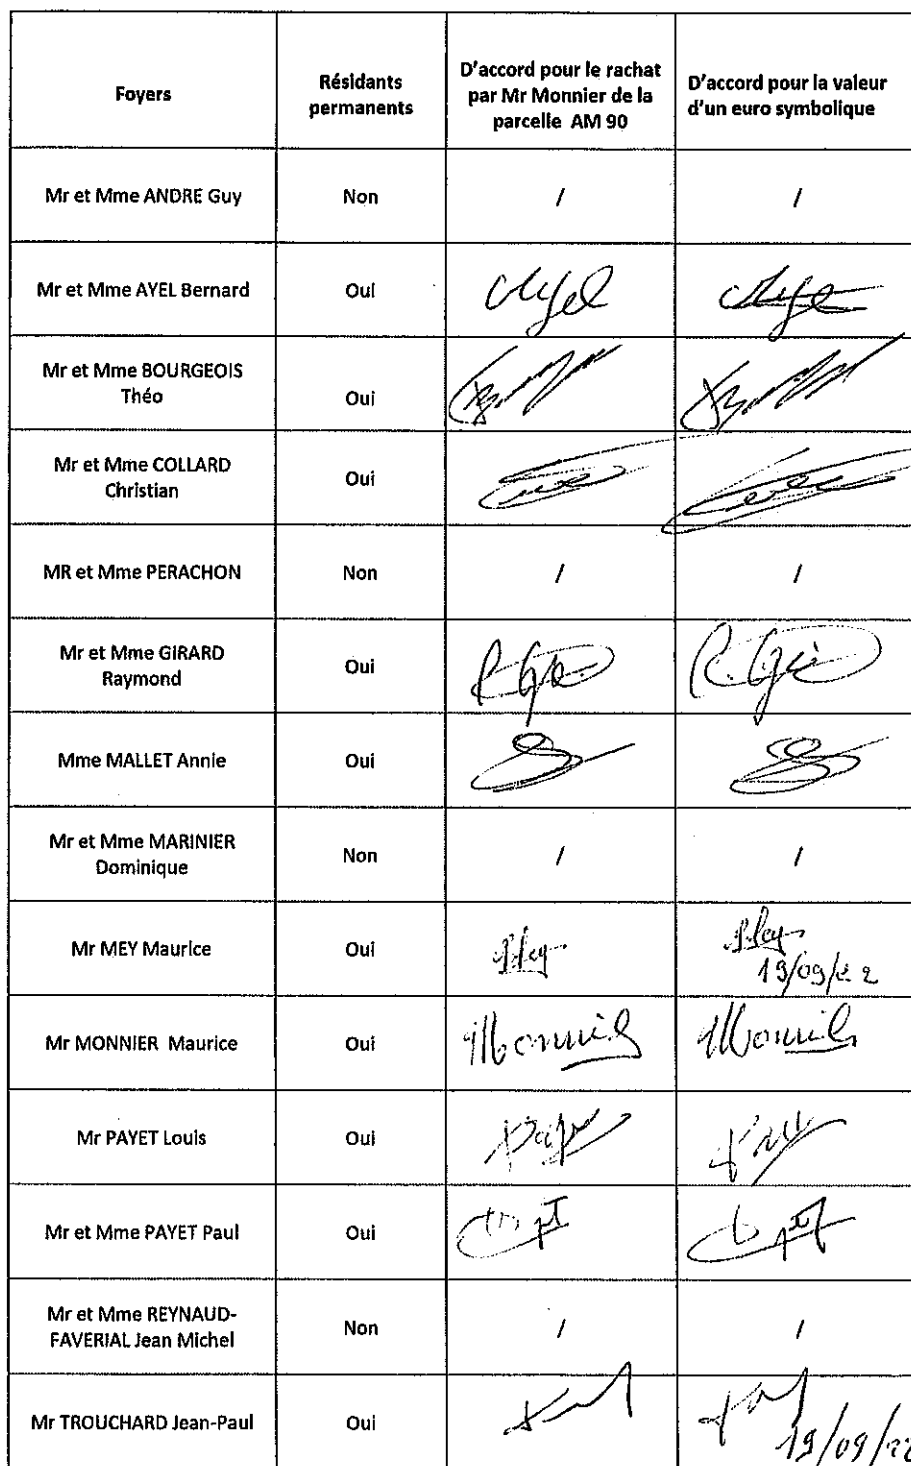 Foyers
Résidants
permanents
D'accord pour le rachat
par Mr Monnier de la
parcelle AM 90
D'accord pour la valeur
d'un euro symbolique
Mr et Mme ANDRE Guy
Non
/
/
Mr et Mme AYEL Bernard
Oui
Ayel
Mr et Mme BOURGEOIS
Théo
Oui
Mr et Mme COLLARD
Christian
Oui
MR et Mme PERACHON
Non
/
/
Mr et Mme GIRARD
Raymond
Oui
Mme MALLET Annie
Oui
Mr et Mme MARINIER
Dominique
Non
/
/
Mr MEY Maurice
Oui
Mey
Mey
19/09/22
Mr MONNIER Maurice
Oui
Monnier
Monnier
Mr PAYET Louis
Oui
Mr et Mme PAYET Paul
Oui
Mr et Mme REYNAUD-
FAVERIAL Jean Michel
Non
/
/
Mr TROUCHARD Jean-Paul
Oui
19/09/22